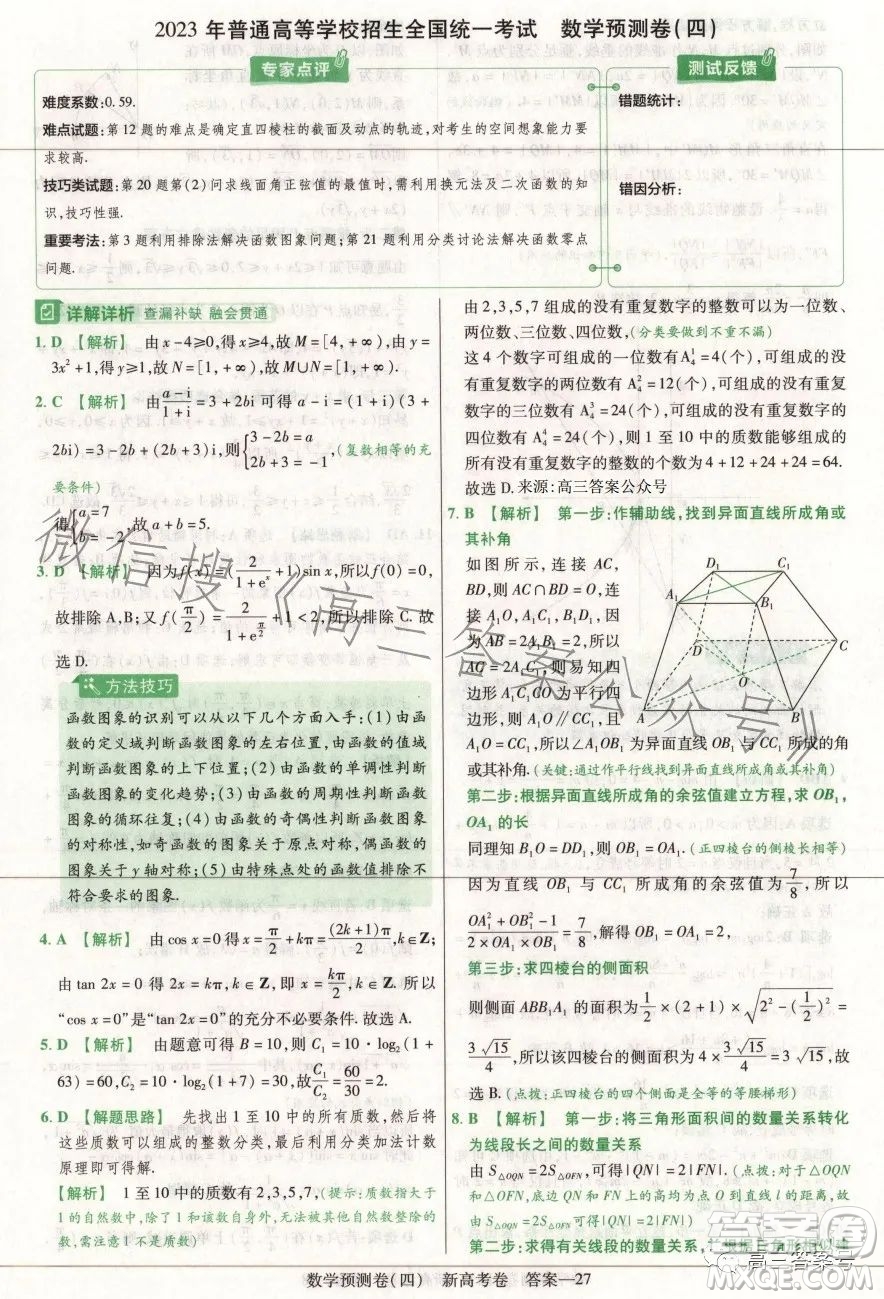 2023 年普通高等学校招生全国统一考试　数学预测卷(四)
专家点评
难度系数:0.59.
难点试题:第 12 题的难点是确定直四棱柱的截面及动点的轨迹,对考生的空间想象能力要
求较高.
技巧类试题:第 20 题第(2)问求线面角正弦值的最值时,需利用换元法及二次函数的知
识,技巧性强.
重要考法:第 3 题利用排除法解决函数图象问题;第 21 题利用分类讨论法解决函数零点
问题.
测试反馈
错题统计:
错因分析:
详解详析 查漏补缺 融会贯通
1. D 【解析】 由 x-4≥0,得 x≥4,故 M=[4,+∞),由 y=
3x²+1,得 y≥1,故 N=[1,+∞),故 M∪N=[1,+∞).
2. C 【解析】 由(a-i)/(1+i)=3+2bi 可得 a-i=(1+i)(3+
2bi)=3-2b+(2b+3)i,则{3-2b=a, 2b+3=-1,(复数相等的充
要条件)
得{a=7, b=-2,故 a+b=5.
3. D 【解析】 因为 f(x)=(2/(1+eˣ)+1)sin x,所以 f(0)=0,
故排除 A,B;又 f(π/2)=2/(1+e^(π/2))+1<2,所以排除 C. 故
选 D.
方法技巧
函数图象的识别可以从以下几个方面入手:(1)由函
数的定义域判断函数图象的左右位置,由函数的值域
判断函数图象的上下位置;(2)由函数的单调性判断
函数图象的变化趋势;(3)由函数的周期性判断函数
图象的循环往复;(4)由函数的奇偶性判断函数图象
的对称性,如奇函数的图象关于原点对称,偶函数的
图象关于 y 轴对称;(5)由特殊点处的函数值排除不
符合要求的图象.
4. A 【解析】 由 cos x=0 得 x=π/2+kπ=(2k+1)π/2,k∈Z;
由 tan 2x=0 得 2x=kπ,k∈Z,即 x=kπ/2,k∈Z. 所以
“cos x=0”是“tan 2x=0”的充分不必要条件. 故选 A.
5. D 【解析】 由题意可得 B=10,则 C₁=10·log₂(1+
63)=60,C₂=10·log₂(1+7)=30,故C₁/C₂=60/30=2.
6. D 【解题思路】 先找出 1 至 10 中的所有质数,然后将
这些质数可以组成的整数分类,最后利用分类加法计数
原理即可得解.
【解析】 1 至 10 中的质数有 2,3,5,7,(提示:质数指大于
1 的自然数中,除了 1 和该数自身外,无法被其他自然数整除的数,
1 不是质数)
由 2,3,5,7 组成的没有重复数字的整数可以为一位数、
两位数、三位数、四位数,(分类要做到不重不漏)
这 4 个数字可组成的一位数有A₄¹=4(个),可组成的没有
重复数字的两位数有 A₄²=12(个),可组成的没有重复
数字的三位数有A₄³=24(个),可组成的没有重复数字的
四位数有 A₄⁴=24(个),则 1 至 10 中的质数能够组成的
所有没有重复数字的整数的个数为 4+12+24+24=64.
故选 D.米源:高三答案公众号
7. B 【解析】 第一步:作辅助线,找到异面直线所成角或
其补角
如图所示,连接 AC,
BD,设 AC∩BD=O,连
接 A₁O,A₁C₁,B₁O,因
为 AB=2A₁B₁,所以
AC=2A₁C₁,则易知四
边形 A₁C₁CO 为平行四
边形,所以 A₁O∥CC₁,且
D₁
C₁
A₁
B₁
D
C
O
A
B
A₁O=CC₁,所以∠A₁OB₁ 为异面直线 OB₁ 与 CC₁ 所成的角或
其补角.(关键:通过作平行线找到异面直线所成角或其补角)
第二步:根据异面直线所成角的余弦值建立方程,求 OB₁,
OA₁ 的长
同理知 B₁O=DD₁,则 OA₁=OB₁.(正四棱台的侧棱长相等)
因为直线 OB₁ 与 CC₁ 所成角的余弦值为7/8,所以
(OA₁²+OB₁²-1)/(2×OA₁×OB₁)=7/8,解得 OB₁=OA₁=2,
第三步:求四棱台的侧面积
则侧面 ABB₁A₁ 的面积为1/2×(2+1)×√(2²-(1/2)²)=
3√15/4,所以该四棱台的侧面积为 4×3√15/4=3√15,故
选 B.(点拨:正四棱台的四个侧面是全等的等腰梯形)
8. B 【解析】 第一步:将三角形面积间的数量关系转化
为线段长之间的数量关系
由 S△OQN=2S△OFN可得|QN|=2|FN|.(点拨:对于△OQN
和△OFN,底边 QN 和 FN 上的高均为点 O 到直线 l 的距离,故
由 S△OQN=2S△OFN可得|QN|=2|FN|)
第二步:求得有关线段的数量关系,
数学预测卷(四)　新高考卷　答案—27
微信搜《高三答案公众号》
答案圈
高三答案号